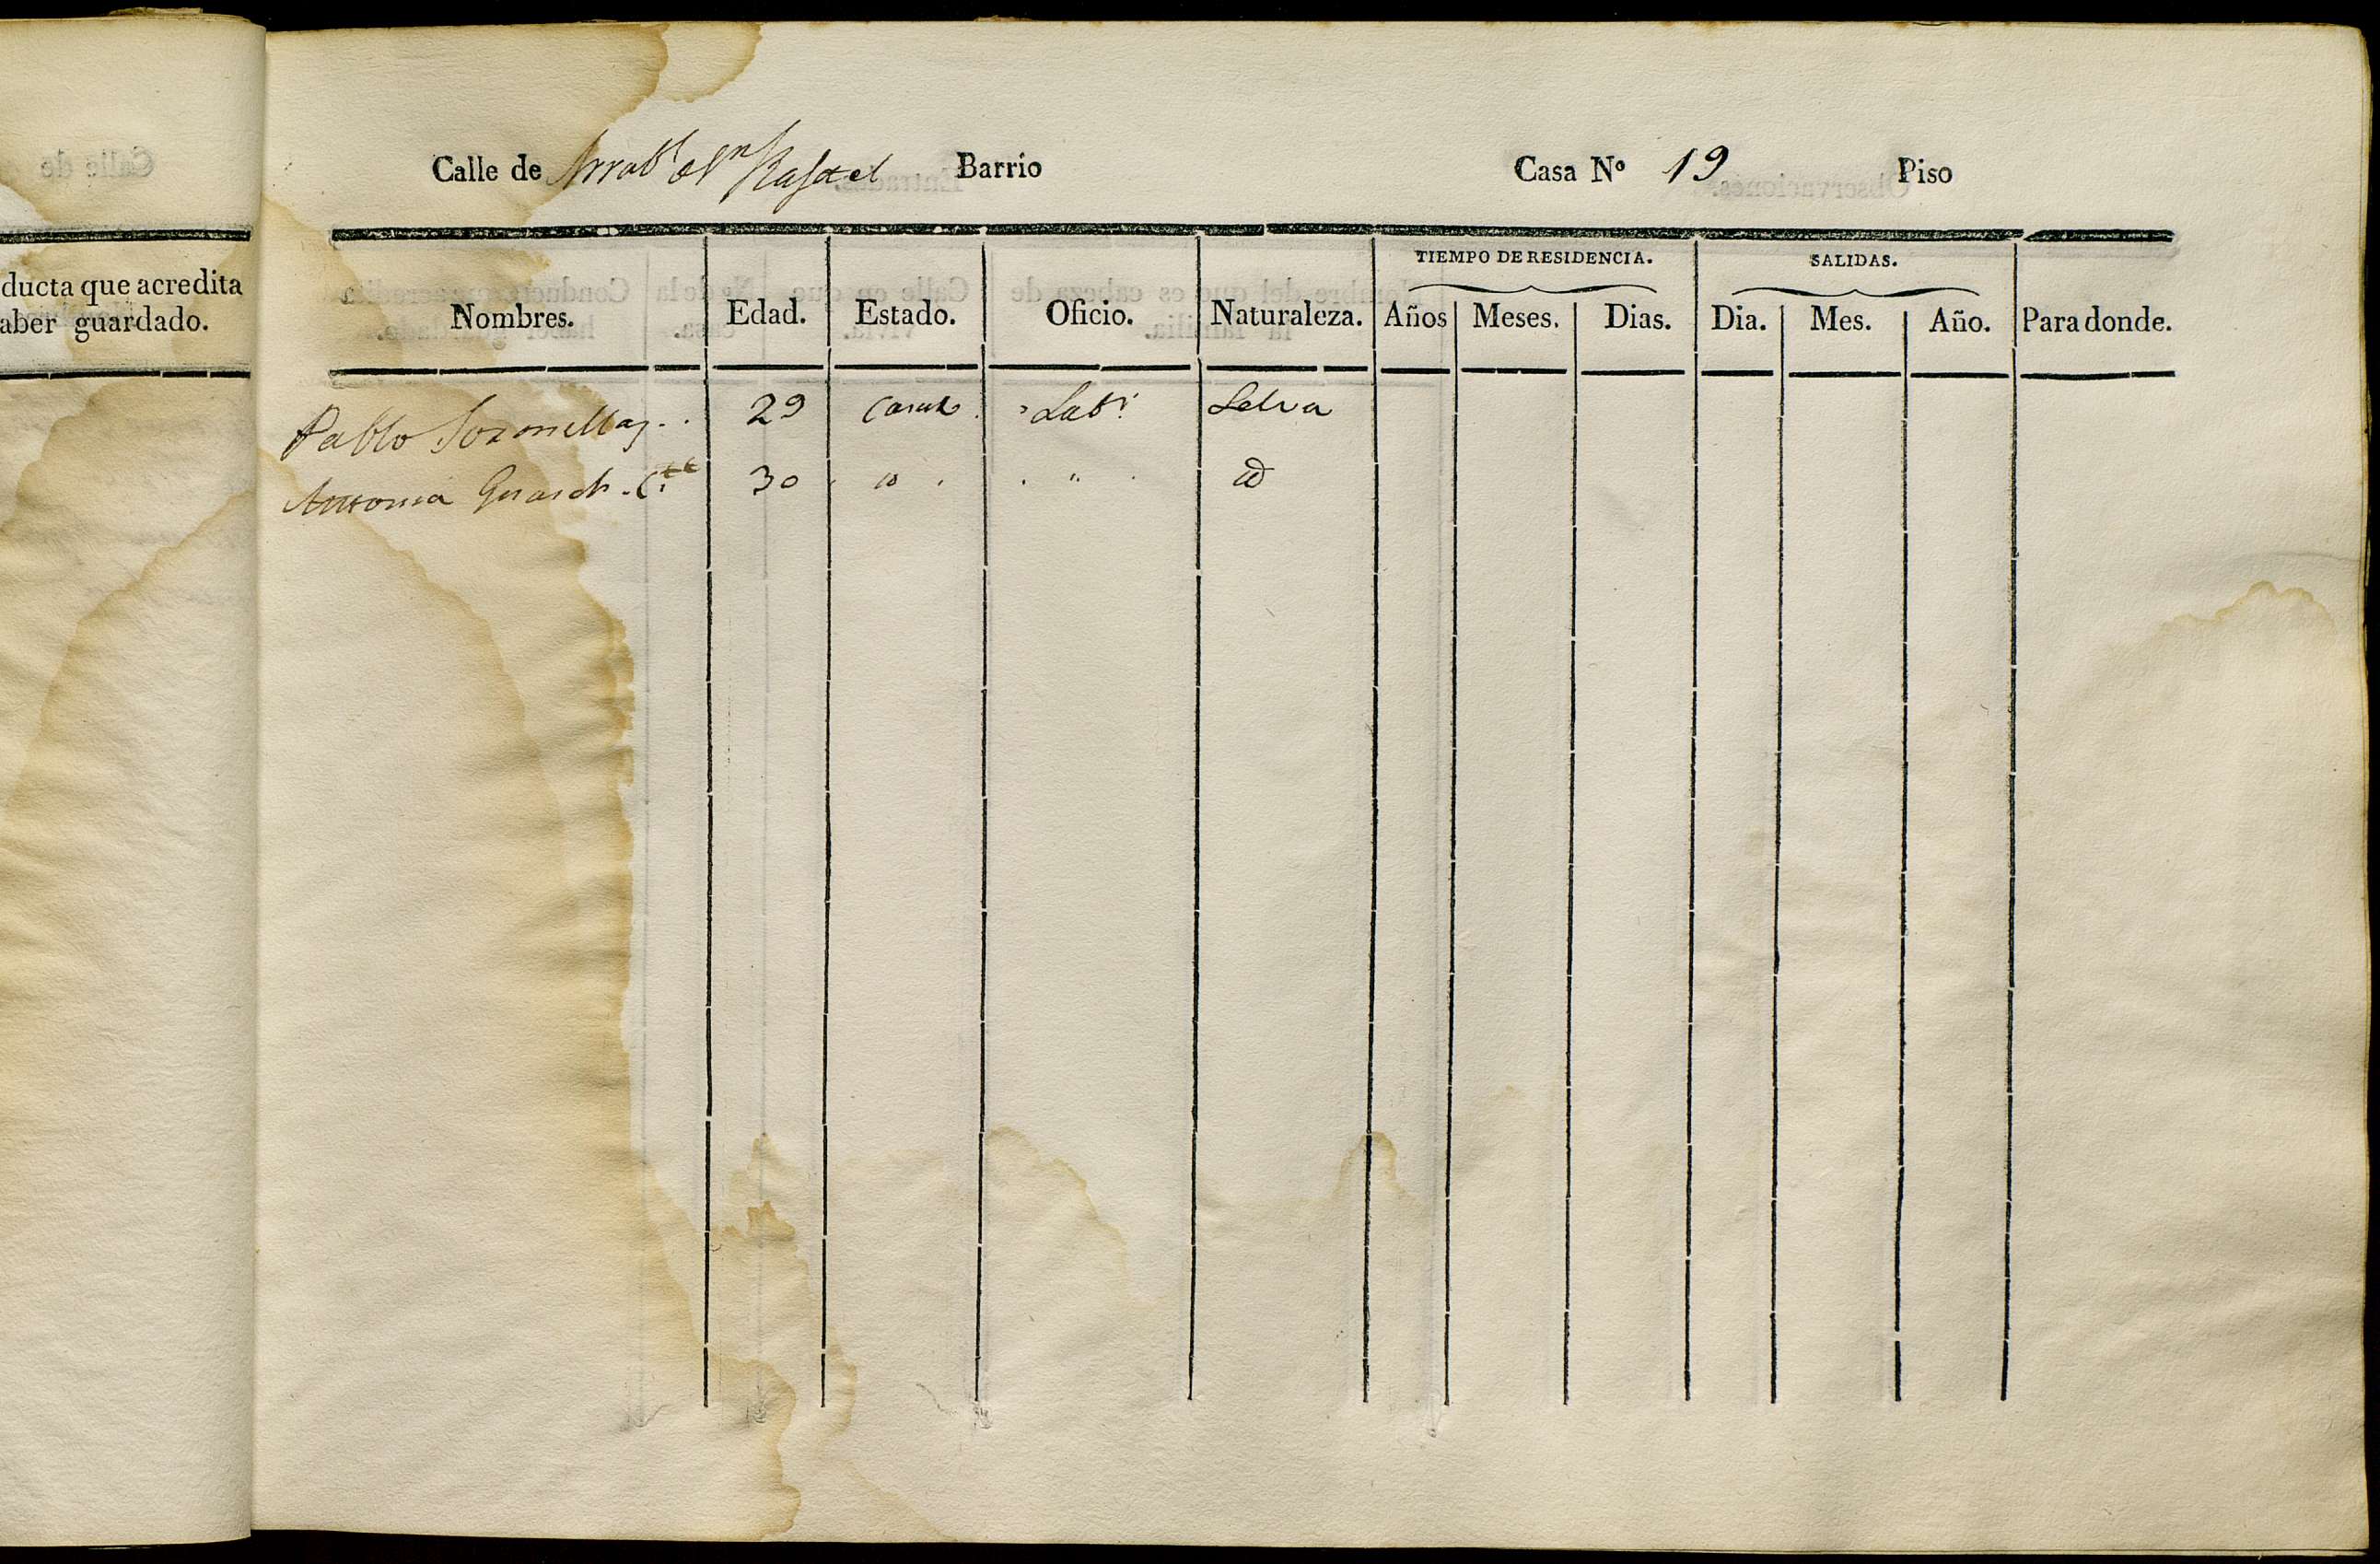 ducta que acredita
aber guardado.
Calle de Arrabl Sn Rafael Barrio Casa Nº 19 Piso
TIEMPO DE RESIDENCIA. SALIDAS.
Nombres. Edad. Estado. Oficio. Naturaleza. Años Meses. Dias. Dia. Mes. Año. Para donde.
Pablo 29 Casado Labr Selva
Antonia 30 " " id